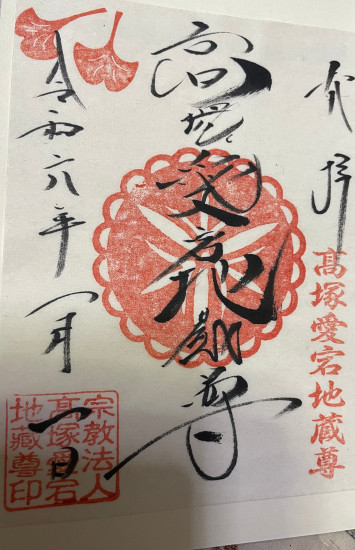 奉拝
髙塚愛宕地蔵尊
高塚愛宕地蔵尊
令和六年一月一日
宗教法人
髙塚愛宕
地藏尊印